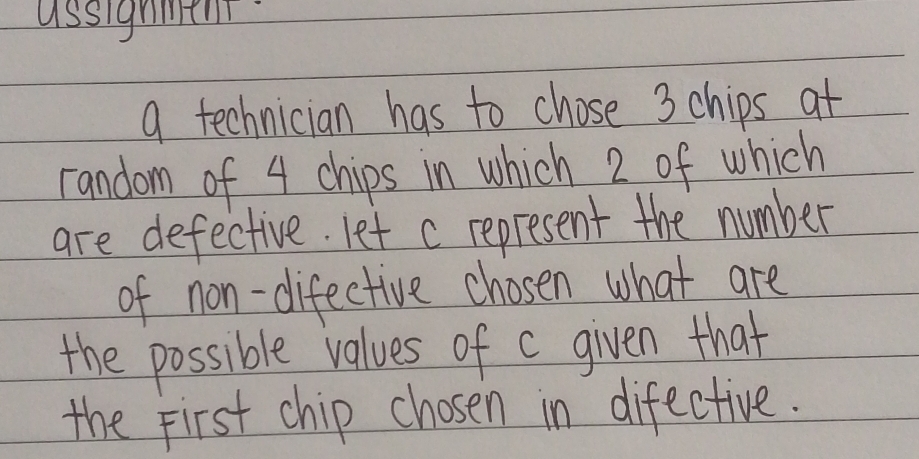 assignment.
a technician has to chose 3 chips at
random of 4 chips in which 2 of which
are defective. let c represent the number
of non-difective chosen what are
the possible values of c given that
the First chip chosen in difective.